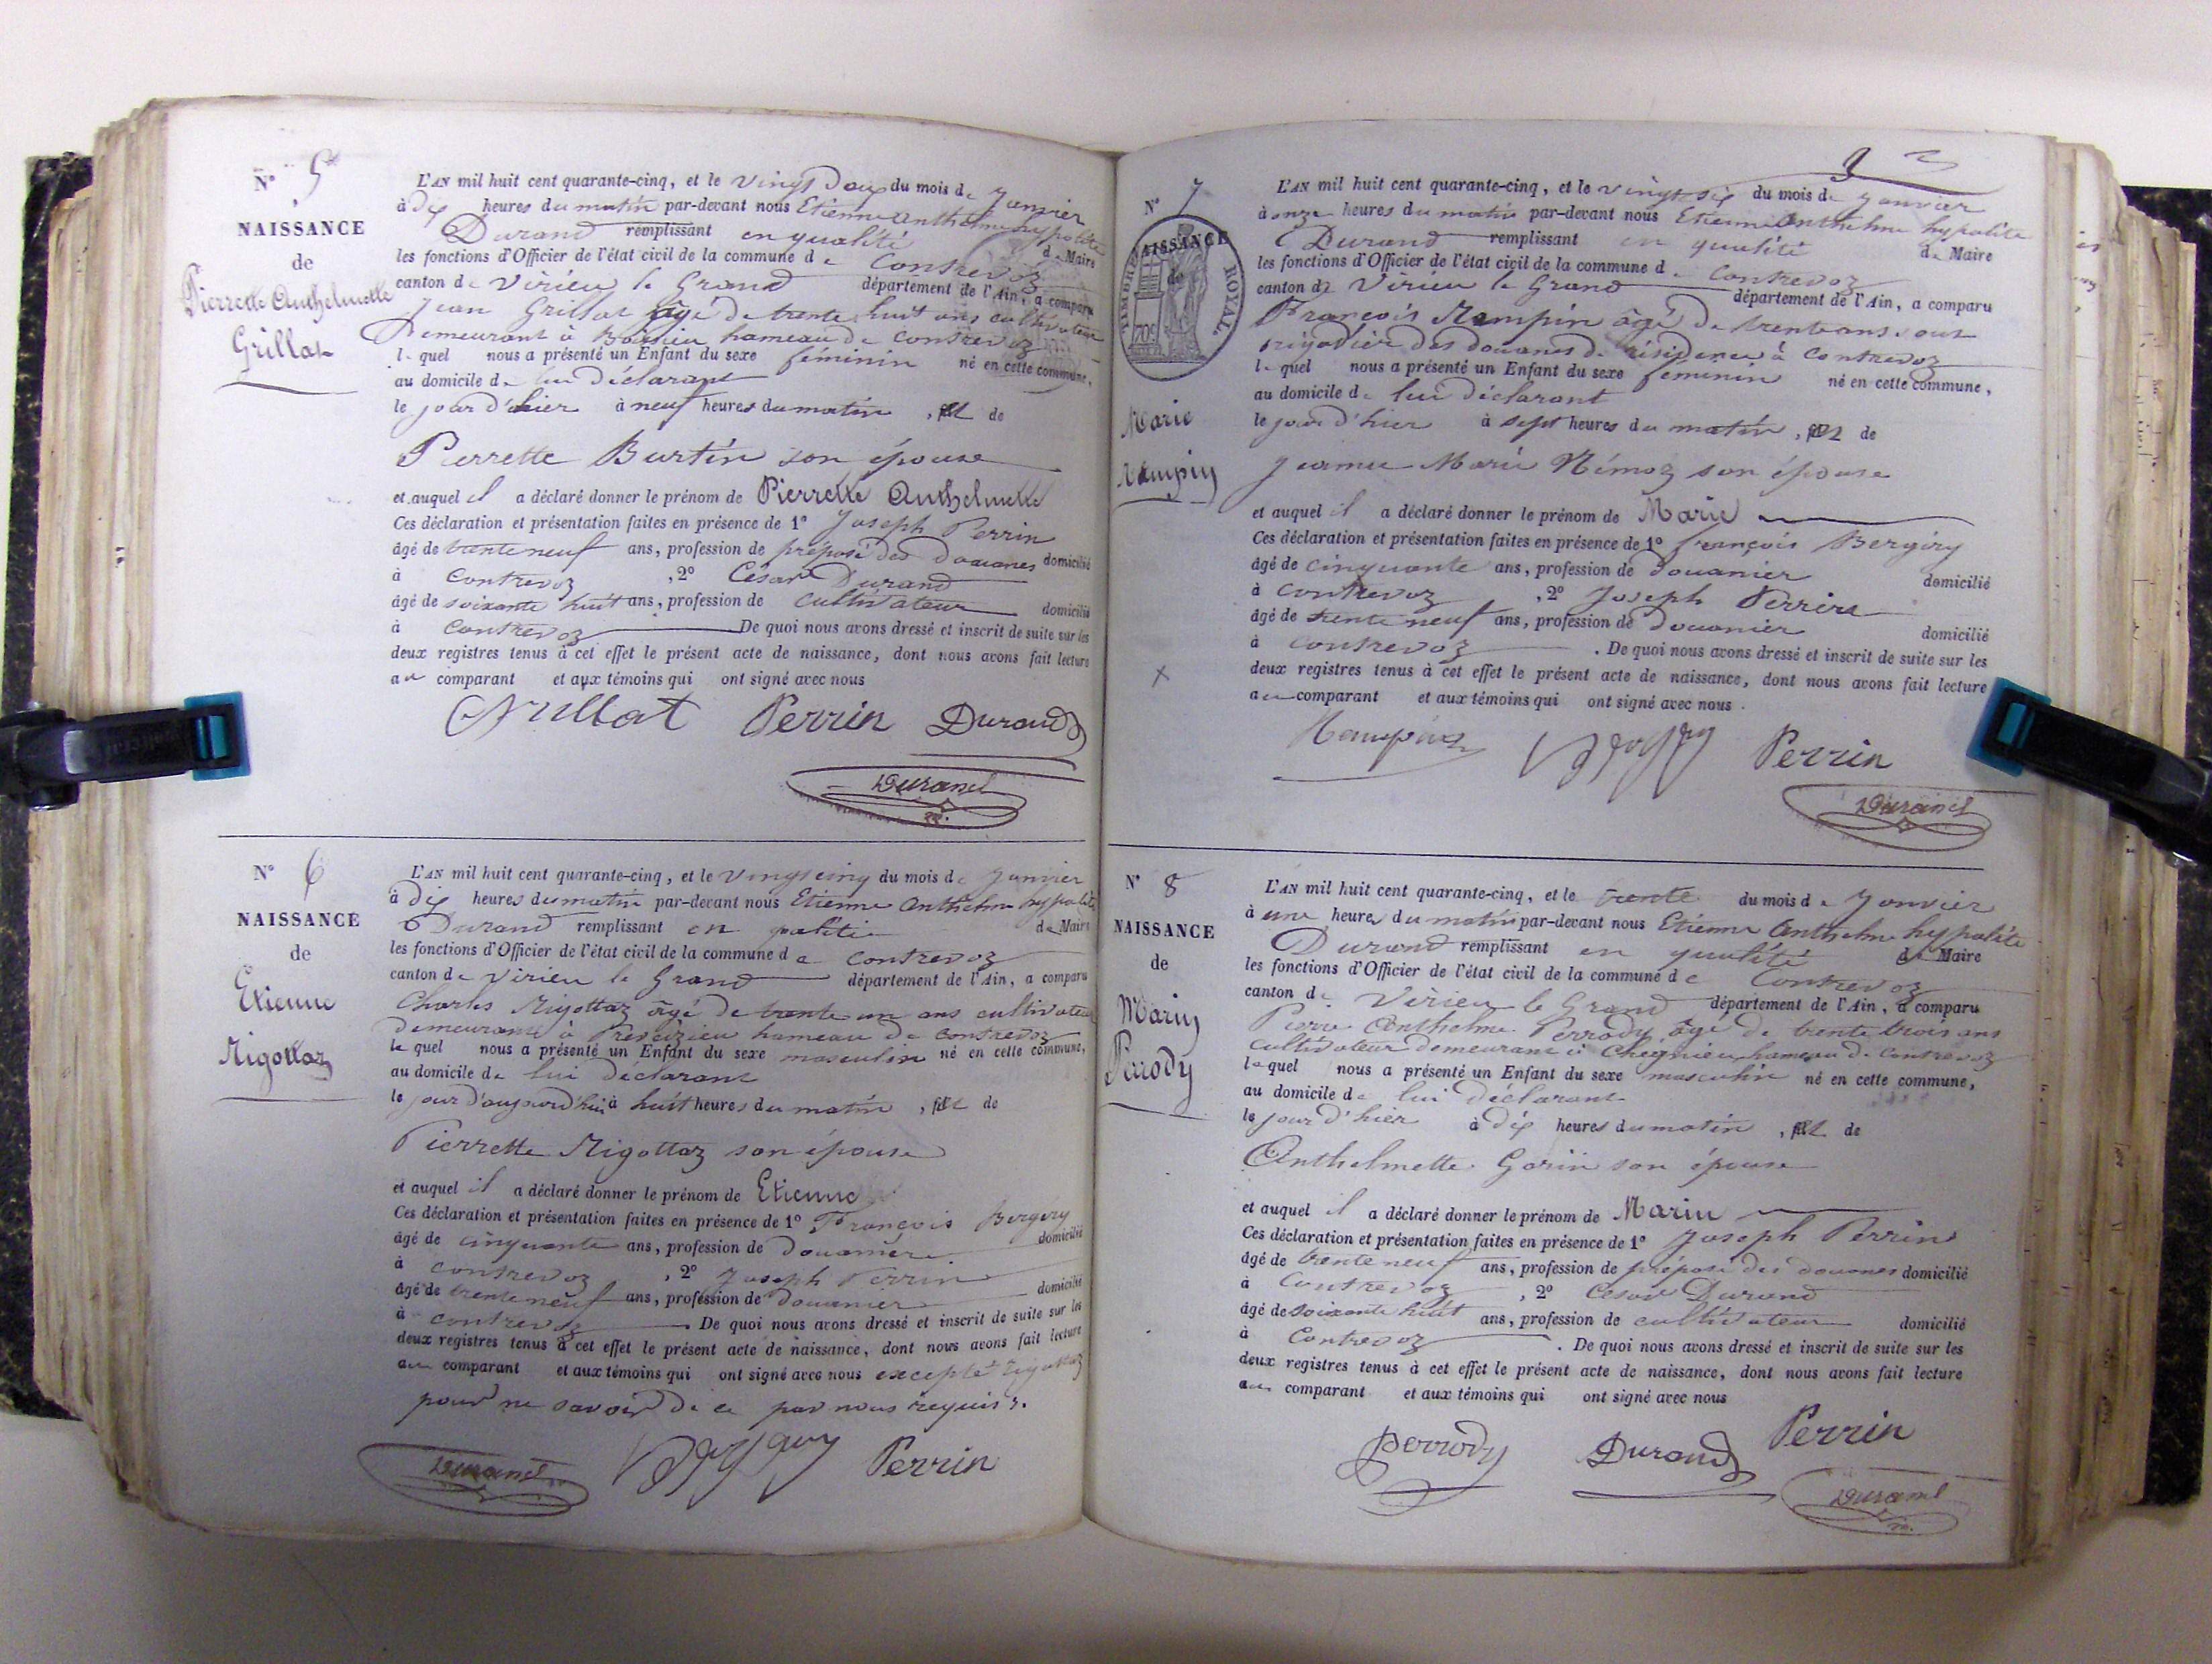 N° 5
NAISSANCE
de
Pierrette Anthelmette
Grillat
L'AN mil huit cent quarante-cinq, et le vingt deux du mois de Janvier
à dix heures du matin par-devant nous Etienne Anthelme hypolite
Durand remplissant en qualité de Maire
les fonctions d'Officier de l'état civil de la commune de Contrevoz
canton de Virieu le Grand département de l'Ain, a comparu
Jean Grillat âgé de trente huit ans cultivateur
Demeurant à Boissieu hameau de Contrevoz
lequel nous a présenté un Enfant du sexe féminin né en cette commune,
au domicile de lui déclarant
le jour d'hier à neuf heures du matin, et de
Pierrette Burtin son épouse
et auquel il a déclaré donner le prénom de Pierrette Anthelmette
Ces déclaration et présentation faites en présence de 1° Joseph Perrin
âgé de trente neuf ans, profession de préposé des Douanes domicilié
à Contrevoz, 2° César Durand
âgé de soixante huit ans, profession de cultivateur domicilié
à Contrevoz De quoi nous avons dressé et inscrit de suite sur les
deux registres tenus à cet effet le présent acte de naissance, dont nous avons fait lecture
au comparant et aux témoins qui ont signé avec nous
Grillat Perrin Durand
Durand
N° 6
NAISSANCE
de
Etienne
Rigottaz
L'AN mil huit cent quarante-cinq, et le vingt cinq du mois de Janvier
à dix heures du matin par-devant nous Etienne Anthelme hypolite
Durand remplissant en qualité de Maire
les fonctions d'Officier de l'état civil de la commune de Contrevoz
canton de Virieu le Grand département de l'Ain, a comparu
Charles Rigottaz âgé de trente un ans cultivateur
demeurant à Preveizieu hameau de Contrevoz
lequel nous a présenté un Enfant du sexe masculin né en cette commune,
au domicile de lui déclarant
le jour d'aujourd'hui à huit heures du matin, et de
Pierrette Rigottaz son épouse
et auquel il a déclaré donner le prénom de Etienne
Ces déclaration et présentation faites en présence de 1° François Bergery
âgé de cinquante ans, profession de Douanier domicilié
à Contrevoz, 2° Joseph Perrin
âgé de trente neuf ans, profession de douanier domicilié
à Contrevoz De quoi nous avons dressé et inscrit de suite sur les
deux registres tenus à cet effet le présent acte de naissance, dont nous avons fait lecture
au comparant et aux témoins qui ont signé avec nous excepté Rigottaz
pour ne savoir de ce par nous requis.
Durand Bergery Perrin
N° 7
NAISSANCE
de
TIMBRE ROYAL
70c
Marie
Rampin
L'AN mil huit cent quarante-cinq, et le vingt six du mois de Janvier
à onze heures du matin par-devant nous Etienne Anthelme hypolite
Durand remplissant en qualité de Maire
les fonctions d'Officier de l'état civil de la commune de Contrevoz
canton de Virieu le Grand département de l'Ain, a comparu
François Rampin âgé de trente ans sous
brigadier des douanes de résidence à Contrevoz
lequel nous a présenté un Enfant du sexe féminin né en cette commune,
au domicile de lui déclarant
le jour d'hier à sept heures du matin, et de
Jeanne Marie Némoz son épouse
et auquel il a déclaré donner le prénom de Marie
Ces déclaration et présentation faites en présence de 1° françois Bergery
âgé de cinquante ans, profession de douanier domicilié
à Contrevoz, 2° Joseph Perrin
âgé de trente neuf ans, profession de Douanier domicilié
à Contrevoz. De quoi nous avons dressé et inscrit de suite sur les
deux registres tenus à cet effet le présent acte de naissance, dont nous avons fait lecture
au comparant et aux témoins qui ont signé avec nous.
Rampin Bergery Perrin
Durand
N° 8
NAISSANCE
de
Marin
Perrody
L'AN mil huit cent quarante-cinq, et le trente du mois de Janvier
à une heure du matin par-devant nous Etienne Anthelme hypolite
Durand remplissant en qualité de Maire
les fonctions d'Officier de l'état civil de la commune de Contrevoz
canton de Virieu le Grand département de l'Ain, a comparu
Pierre Anthelme Perrody âgé de trente trois ans
cultivateur demeurant à Chegnieu hameau de Contrevoz
lequel nous a présenté un Enfant du sexe masculin né en cette commune,
au domicile de lui déclarant
le jour d'hier à dix heures du matin, et de
Anthelmette Gorin son épouse
et auquel il a déclaré donner le prénom de Marin
Ces déclaration et présentation faites en présence de 1° Joseph Perrin
âgé de trente neuf ans, profession de préposé des douanes domicilié
à Contrevoz, 2° César Durand
âgé de soixante huit ans, profession de cultivateur domicilié
à Contrevoz. De quoi nous avons dressé et inscrit de suite sur les
deux registres tenus à cet effet le présent acte de naissance, dont nous avons fait lecture
au comparant et aux témoins qui ont signé avec nous
Perrody Durand Perrin
Durand